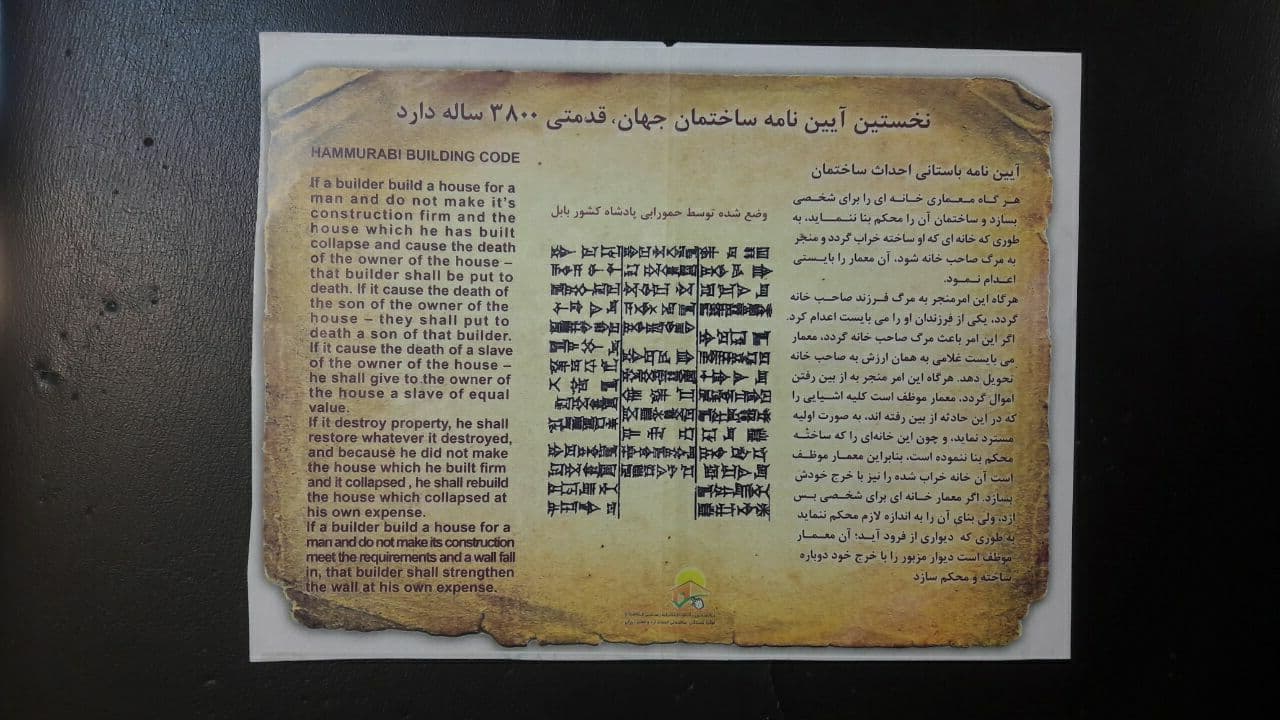 نخستین آیین نامه ساختمان جهان، قدمتی ۳۸۰۰ ساله دارد
HAMMURABI BUILDING CODE
If a builder build a house for a
man and do not make it's
construction firm and the
house which he has built
collapse and cause the death
of the owner of the house –
that builder shall be put to
death. If it cause the death of
the son of the owner of the
house – they shall put to
death a son of that builder.
If it cause the death of a slave
of the owner of the house –
he shall give to the owner of
the house a slave of equal
value.
If it destroy property, he shall
restore whatever it destroyed,
and because he did not make
the house which he built firm
and it collapsed , he shall rebuild
the house which collapsed at
his own expense.
If a builder build a house for a
man and do not make its construction
meet the requirements and a wall fall
in, that builder shall strengthen
the wall at his own expense.
وضع شده توسط حمورابی پادشاه کشور بابل
آیین نامه باستانی احداث ساختمان
هر گاه معماری خانه ای را برای شخصی
بسازد و ساختمان آن را محکم بنا ننماید، به
طوری که خانه ای که او ساخته خراب گردد و منجر
به مرگ صاحب خانه شود، آن معمار را بایستی
اعدام نمود.
هرگاه این امرمنجر به مرگ فرزند صاحب خانه
گردد، یکی از فرزندان او را می بایست اعدام کرد.
اگر این امر باعث مرگ صاحب خانه گردد، معمار
می بایست غلامی به همان ارزش به صاحب خانه
تحویل دهد. هرگاه این امر منجر به از بین رفتن
اموال گردد، معمار موظف است کلیه اشیایی را
که در این حادثه از بین رفته اند، به صورت اولیه
مسترد نماید، و چون این خانه‌ای را که ساخته
محکم بنا ننموده است، بنابراین معمار موظف
است آن خانه خراب شده را نیز با خرج خودش
بسازد. اگر معمار خانه ای برای شخصی بس
ازد، ولی بنای آن را به اندازه لازم محکم ننماید
به طوری که دیواری از فرود آید؛ آن معمار
موظف است دیوار مزبور را با خرج خود دوباره
ساخته و محکم سازد